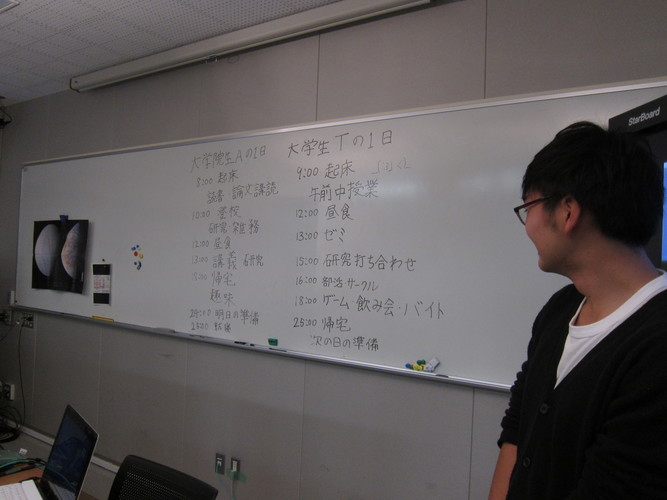 大学院生Aの1日
8:00 起床
読書 論文講読
10:00 登校
研究 雑務
12:00 昼食
13:00 講義 研究
帰宅
趣味
24:00 明日の準備
25:00 就寝
大学生Tの1日
9:00 起床
午前中授業
12:00 昼食
13:00 ゼミ
15:00 研究打ち合わせ
16:00 部活 サークル
18:00 ゲーム 飲み会・バイト
25:00 帰宅
次の日の準備
StarBoard